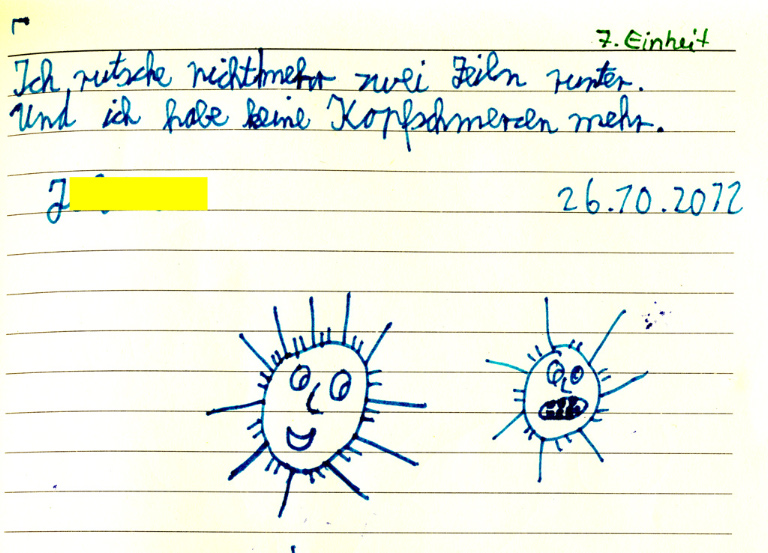 7. Einheit
Ich rutsche nichtmehr zwei Zeiln runter.
Und ich habe keine Kopfschmerzen mehr.
26.10.2012